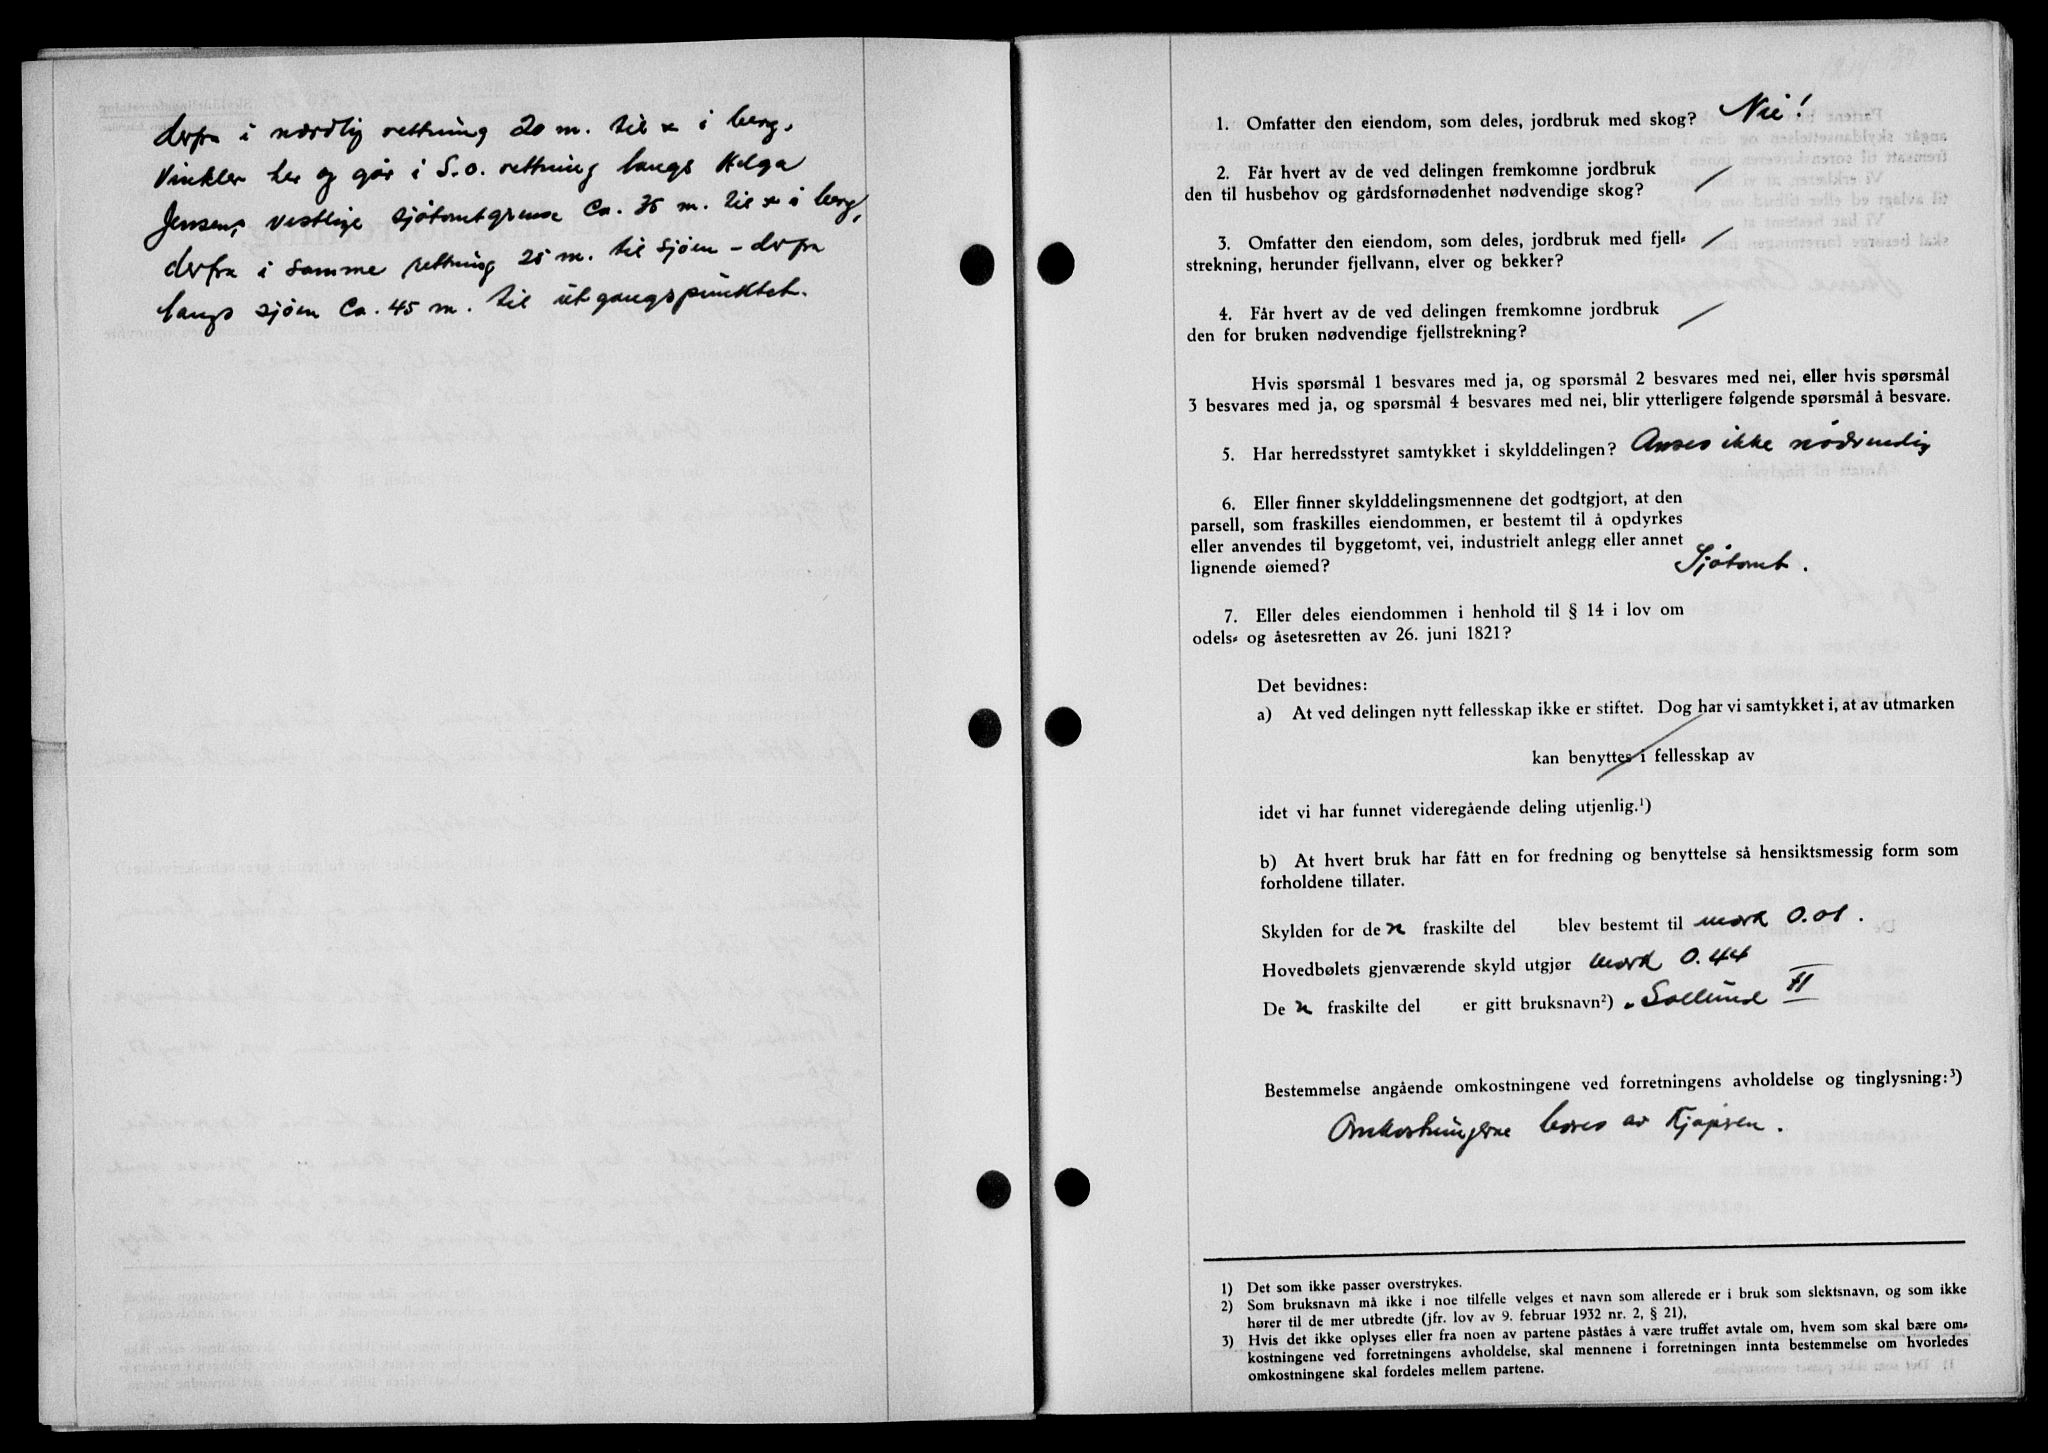 derfra i nordlig rettning 20 m. til x i berg,
Vinkler her og går i S.O. rettning langs Helga
Jensens vestlige sjøtomtgrense Ca. 35 m. til x i berg,
derfra i samme rettning 25 m. til sjøen – derfra
langs sjøen Ca. 45 m. til utgangspunktet.
1. Omfatter den eiendom, som deles, jordbruk med skog? Nei!
2. Får hvert av de ved delingen fremkomne jordbruk
den til husbehov og gårdsfornødenhet nødvendige skog? /
3. Omfatter den eiendom, som deles, jordbruk med fjell-
strekning, herunder fjellvann, elver og bekker? /
4. Får hvert av de ved delingen fremkomne jordbruk
den for bruken nødvendige fjellstrekning? /
Hvis spørsmål 1 besvares med ja, og spørsmål 2 besvares med nei, eller hvis spørsmål
3 besvares med ja, og spørsmål 4 besvares med nei, blir ytterligere følgende spørsmål å besvare.
5. Har herredsstyret samtykket i skylddelingen? Anses ikke nødvendig
6. Eller finner skylddelingsmennene det godtgjort, at den
parsell, som fraskilles eiendommen, er bestemt til å opdyrkes
eller anvendes til byggetomt, vei, industrielt anlegg eller annet
lignende øiemed? Sjøtomt.
7. Eller deles eiendommen i henhold til § 14 i lov om
odels- og åsetesretten av 26. juni 1821?
Det bevidnes:
a) At ved delingen nytt fellesskap ikke er stiftet. Dog har vi samtykket i, at av utmarken
kan benyttes i fellesskap av
idet vi har funnet videregående deling utjenlig.¹)
b) At hvert bruk har fått en for fredning og benyttelse så hensiktsmessig form som
forholdene tillater.
Skylden for den fraskilte del blev bestemt til mark 0.01.
Hovedbølets gjenværende skyld utgjør mark 0.44
Den fraskilte del er gitt bruksnavn²) „Sollund II
Bestemmelse angående omkostningene ved forretningens avholdelse og tinglysning:³)
Omkostningerne bæres av Kjøperen.
1) Det som ikke passer overstrykes.
2) Som bruksnavn må ikke i noe tilfelle velges et navn som allerede er i bruk som slektsnavn, og som ikke
hører til de mer utbredte (jfr. lov av 9. februar 1932 nr. 2, § 21),
3) Hvis det ikke oplyses eller fra noen av partene påståes å være truffet avtale om, hvem som skal bære om-
kostningene ved forretningens avholdelse, skal mennene i forretningen innta bestemmelse om hvorledes
omkostningene skal fordeles mellem partene.